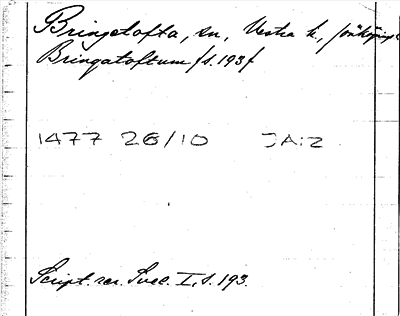 Bringetofta, sn, Vestra h., Jönköpings
Bringatoftum /s. 193/
1477 28/10 JA:2
Script. rer. Svec. I, s. 193.